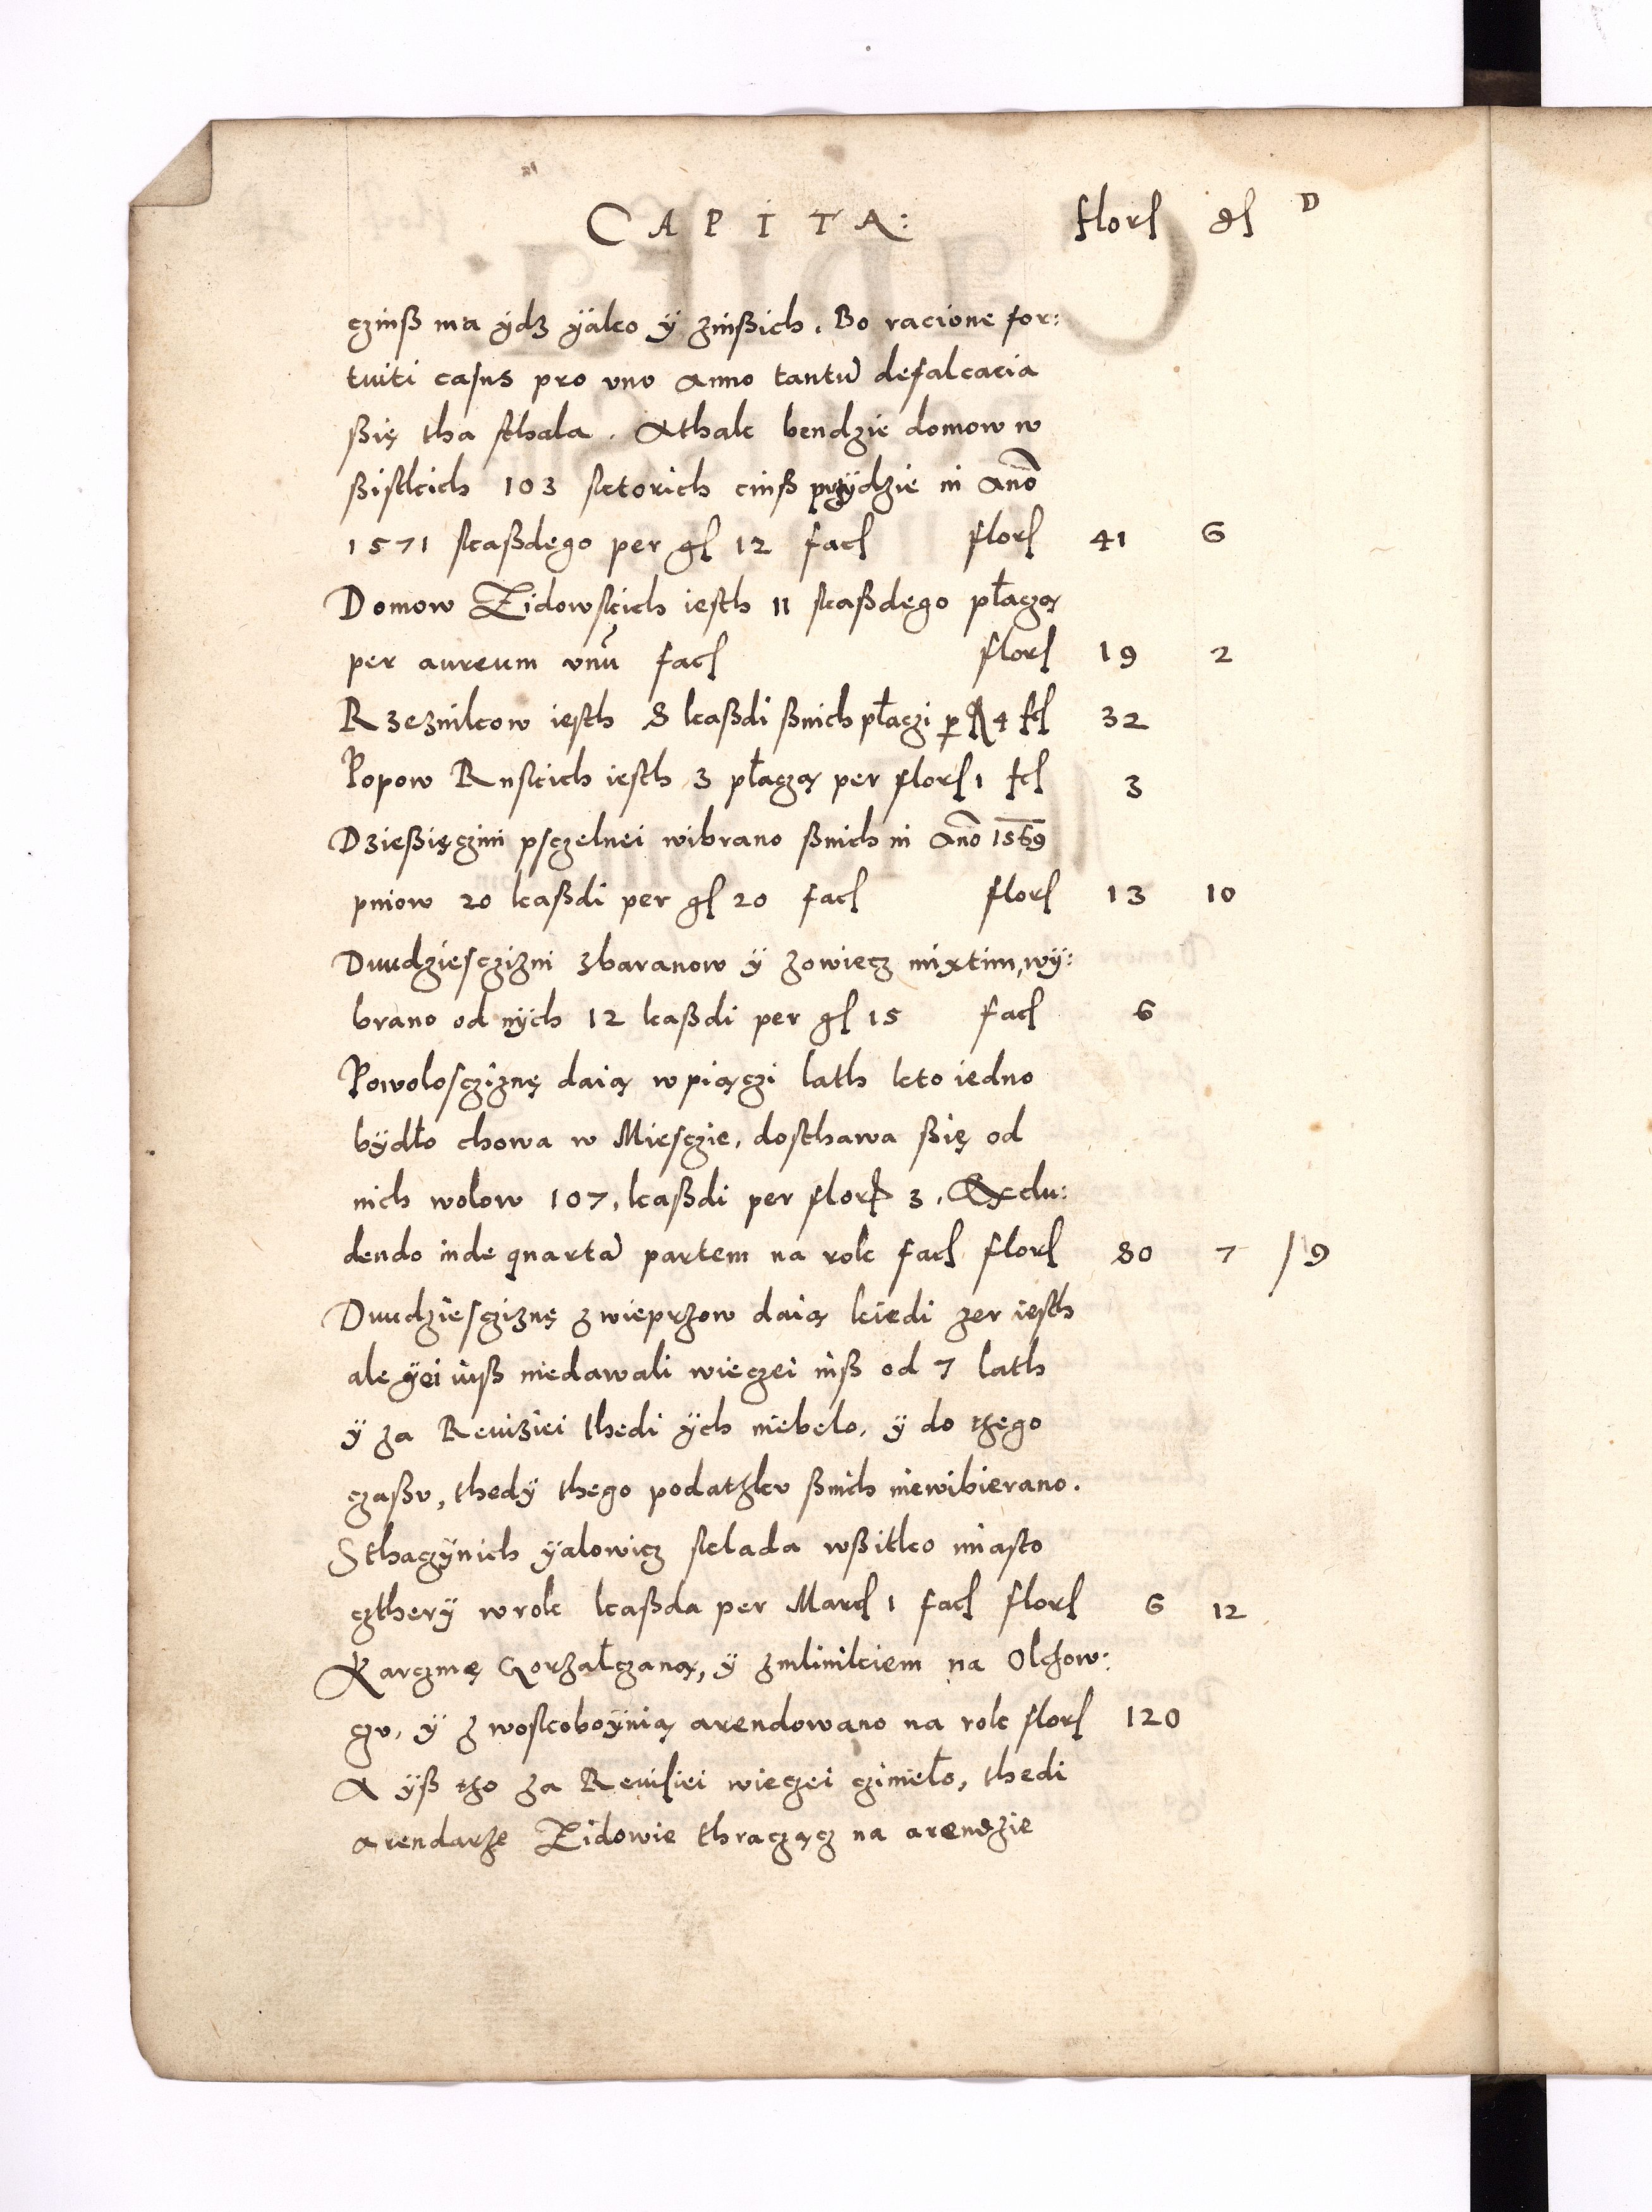 CAPITA: florſ gſ D
czinß ma ÿdz ÿako ÿ zinßich. Bo racione for:
tuiti casus pro uno Anno tantū defalcacia
ßię tha sthala. Athak bendzie domow w
ßistkich 103 sktorich cinß przÿdzie in Anō
1571 skaßdęgo per gſ 12 facſ florſ 41 6
Domow Zidowskich iesth 11 skaßdęgo płaczą
per aureum vnū facſ florſ 19 2
Rzeznikow iesth 8 kaßdi ßnich płaczi per 4 fcſ 32
Popow Ruskich iesth 3 płaczą per florſ 1 fcſ 3
Dzießięczini psczelnei wibrano ßnich in Anō 1569
pniow 20 kaßdi per gſ 20 facſ florſ 13 10
Dwudziesczizni zbaranow ÿ zowiecz mixtim, wÿ:
brano od nÿch 12 kaßdi per gſ 15 facſ 6
Powoloscziznę daią wpiączi lath kto iedno
bÿdło chowa w Miesczie, dosthawa ßię od
nich wolow 107, kaßdi per florſ 3. Exclu:
dendo inde quartā partem na rok facſ florſ 80 7 /9
Dwudziesciznę zwieprzow daią kiedi zer iesth
ale ÿei iuß niedawali wieczei niß od 7 lath
ÿ za Reuiziei thedi ÿch niebelo, ÿ do tzego
czaßv, thedÿ thego podatzkv ßnich niewibierano.
Sthaczÿnich ÿalowicz sklada wßitko miasto
cztherÿ wrok kaßda per Marcſ 1 facſ florſ 6 12
Karczmę Gorzałczaną, ÿ zmlinikiem na Olchow:
czv, ÿ zwoskoboÿnią arendowano na rok florſ 120
A ÿß tzo za Reuisiei wieczei czinieło, thedi
arendarze Zidowie thraczącz na arendzie